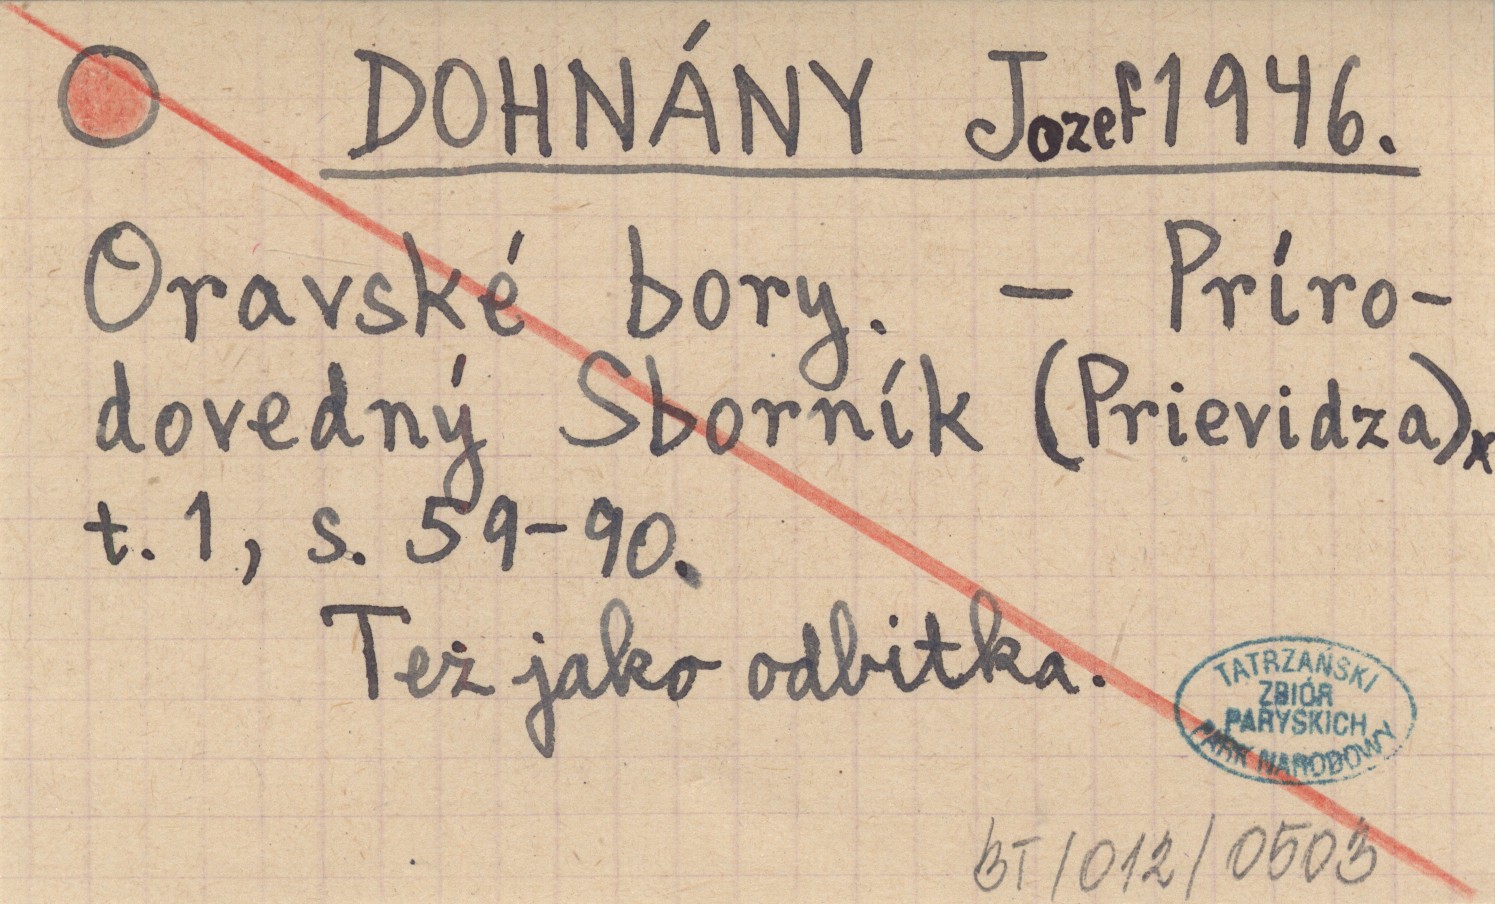 DOHNÁNY Jozef 1946.
Oravské bory. – Príro-
dovedný Sborník (Prievidza),
t. 1, s. 59-90.
Też jako odbitka.
TATRZAŃSKI
ZBIÓR
PARYSKICH
PARK NARODOWY
BT/012/0503